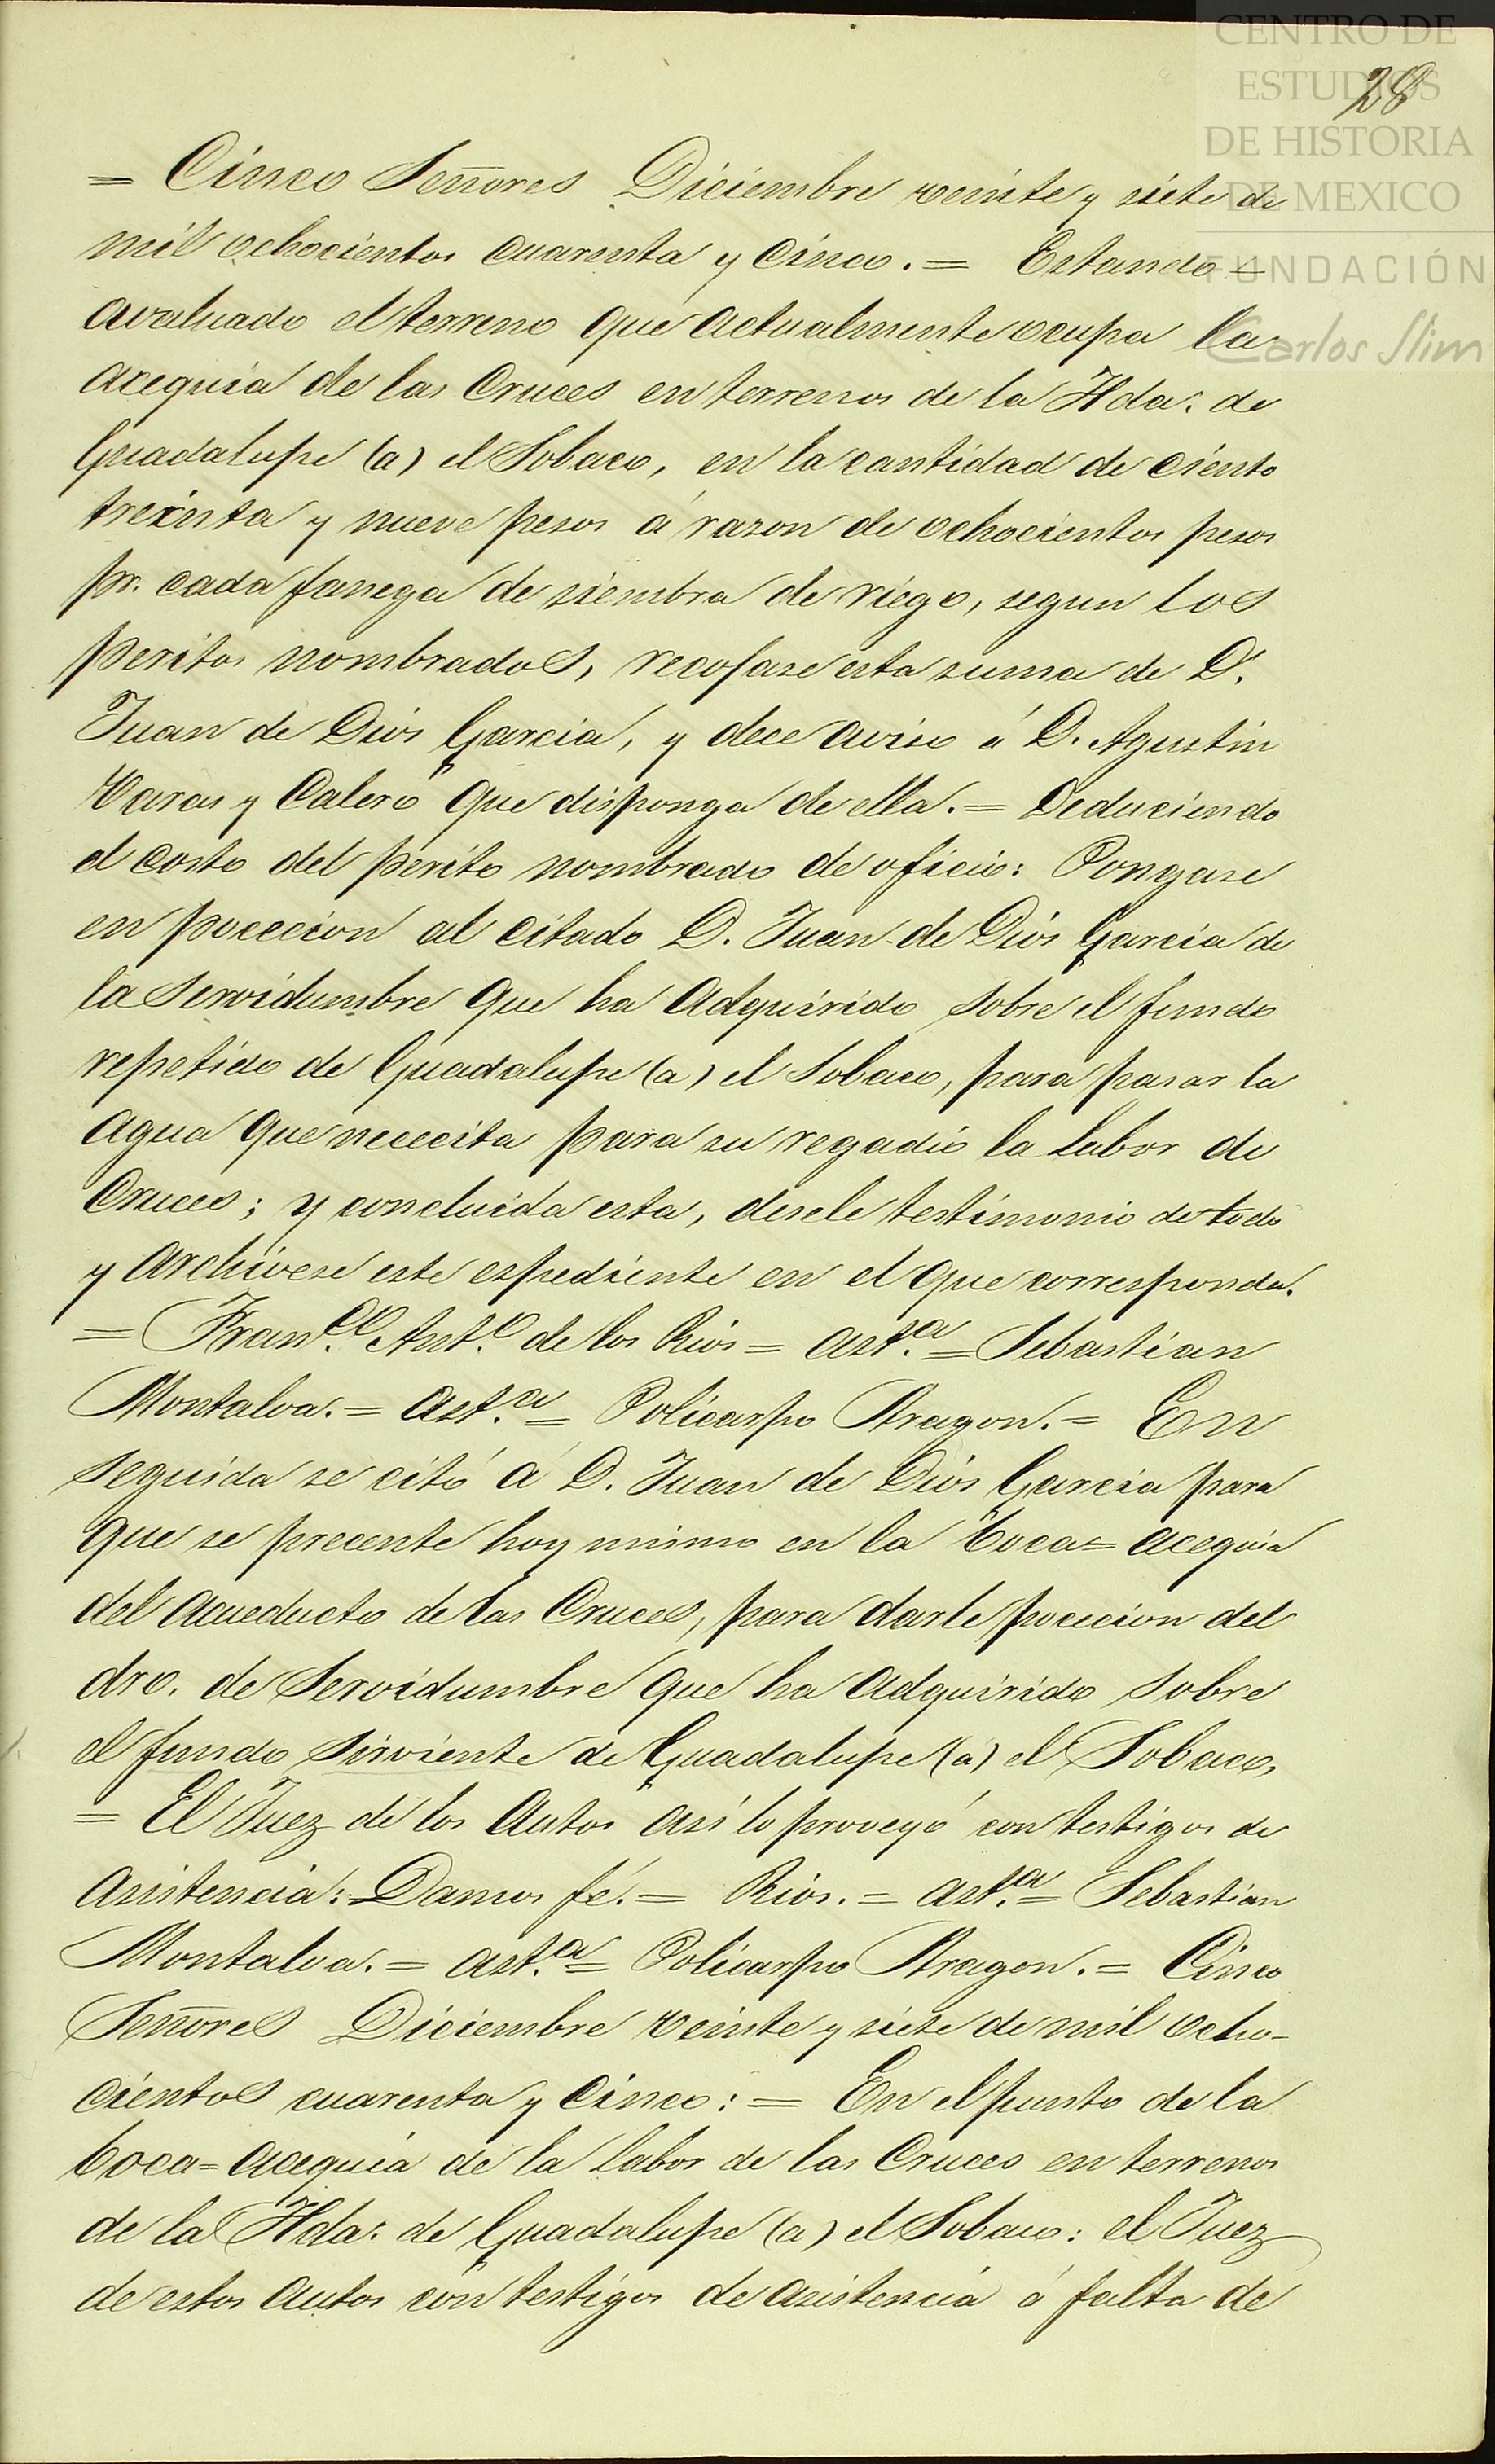 CENTRO DE
ESTUDIOS
DE HISTORIA
DE MEXICO
FUNDACIÓN
Carlos Slim
28
= Cinco Señores Diciembre veinte y siete de
mil ochocientos cuarenta y cinco. = Estando =
avaluado el terreno que actualmente ocupa la
acequia de las Cruces en terrenos de la Hda. de
Guadalupe (a) el Sobaco, en la cantidad de ciento
treinta y nueve pesos á razon de ochocientos pesos
pr. cada fanega de siembra de riego, segun los
peritos nombrados, recojase esta suma de D.
Juan de Dios Garcia, y dece aviso á D. Agustin
Varas y Calero que disponga de ella. = Deduciendo
el costo del perito nombrado de oficio: Pongase
en pocecion al citado D. Juan de Dios Garcia de
la servidumbre que ha adquirido sobre el fundo
repetido de Guadalupe (a) el Sobaco, para pasar la
agua que nececita para su regadio la Labor de
Cruces; y concluida esta, desele testimonio de todo
y archivese este espediente en el que corresponda.
= Franco. Anto. de los Rios = asta. = Sebastian
Montalva. = asta. = Policarpo Aragon. = En
seguida se citó á D. Juan de Dios Garcia para
que se precente hoy mismo en la boca=acequia
del acueducto de las Cruces, para darle pocecion del
dro. de servidumbre que ha adquirido sobre
el fundo sirviente de Guadalupe (a) el Sobaco,
= El Juez de los Autos asi lo proveyó con testigos de
asistencia: Damos fé. = Rios. = asta. = Sebastian
Montalva. = asta. = Policarpo Aragon. = Cinco
Señores Diciembre veinte y siete de mil ocho-
cientos cuarenta y cinco: = En el punto de la
boca=acequia de la labor de las Cruces en terrenos
de la Hda. de Guadalupe (a) el Sobaco: el Juez
de estos autos con testigos de asistencia á falta de